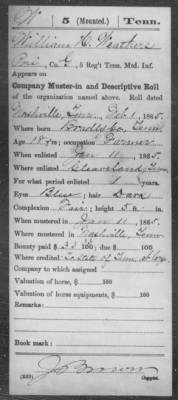 W 5 (Mounted.) Tenn.
William H. Weathers
Co. G, 5 Reg't Tenn. Mtd. Inf.
Appears on
Company Muster-in and Descriptive Roll
of the organization named above. Roll dated
Nashville, Tenn. Feb. 1, 1865.
Where born Bradley Co. Tenn.
Age 18 y'rs; occupation Farmer
When enlisted Jan 1865.
Where enlisted Cleaveland, Tenn.
For what period enlisted 1 years.
Eyes Blue; hair Dark
Complexion Fair; height 5 ft. in.
When mustered in Jan 11, 1865.
Where mustered in Nashville, Tenn
Bounty paid $33 100; due $ 100
Where credited State of Tenn.
Company to which assigned
Valuation of horse, $ 100
Valuation of horse equipments, $ 100
Remarks:
Book mark:
Copyist.